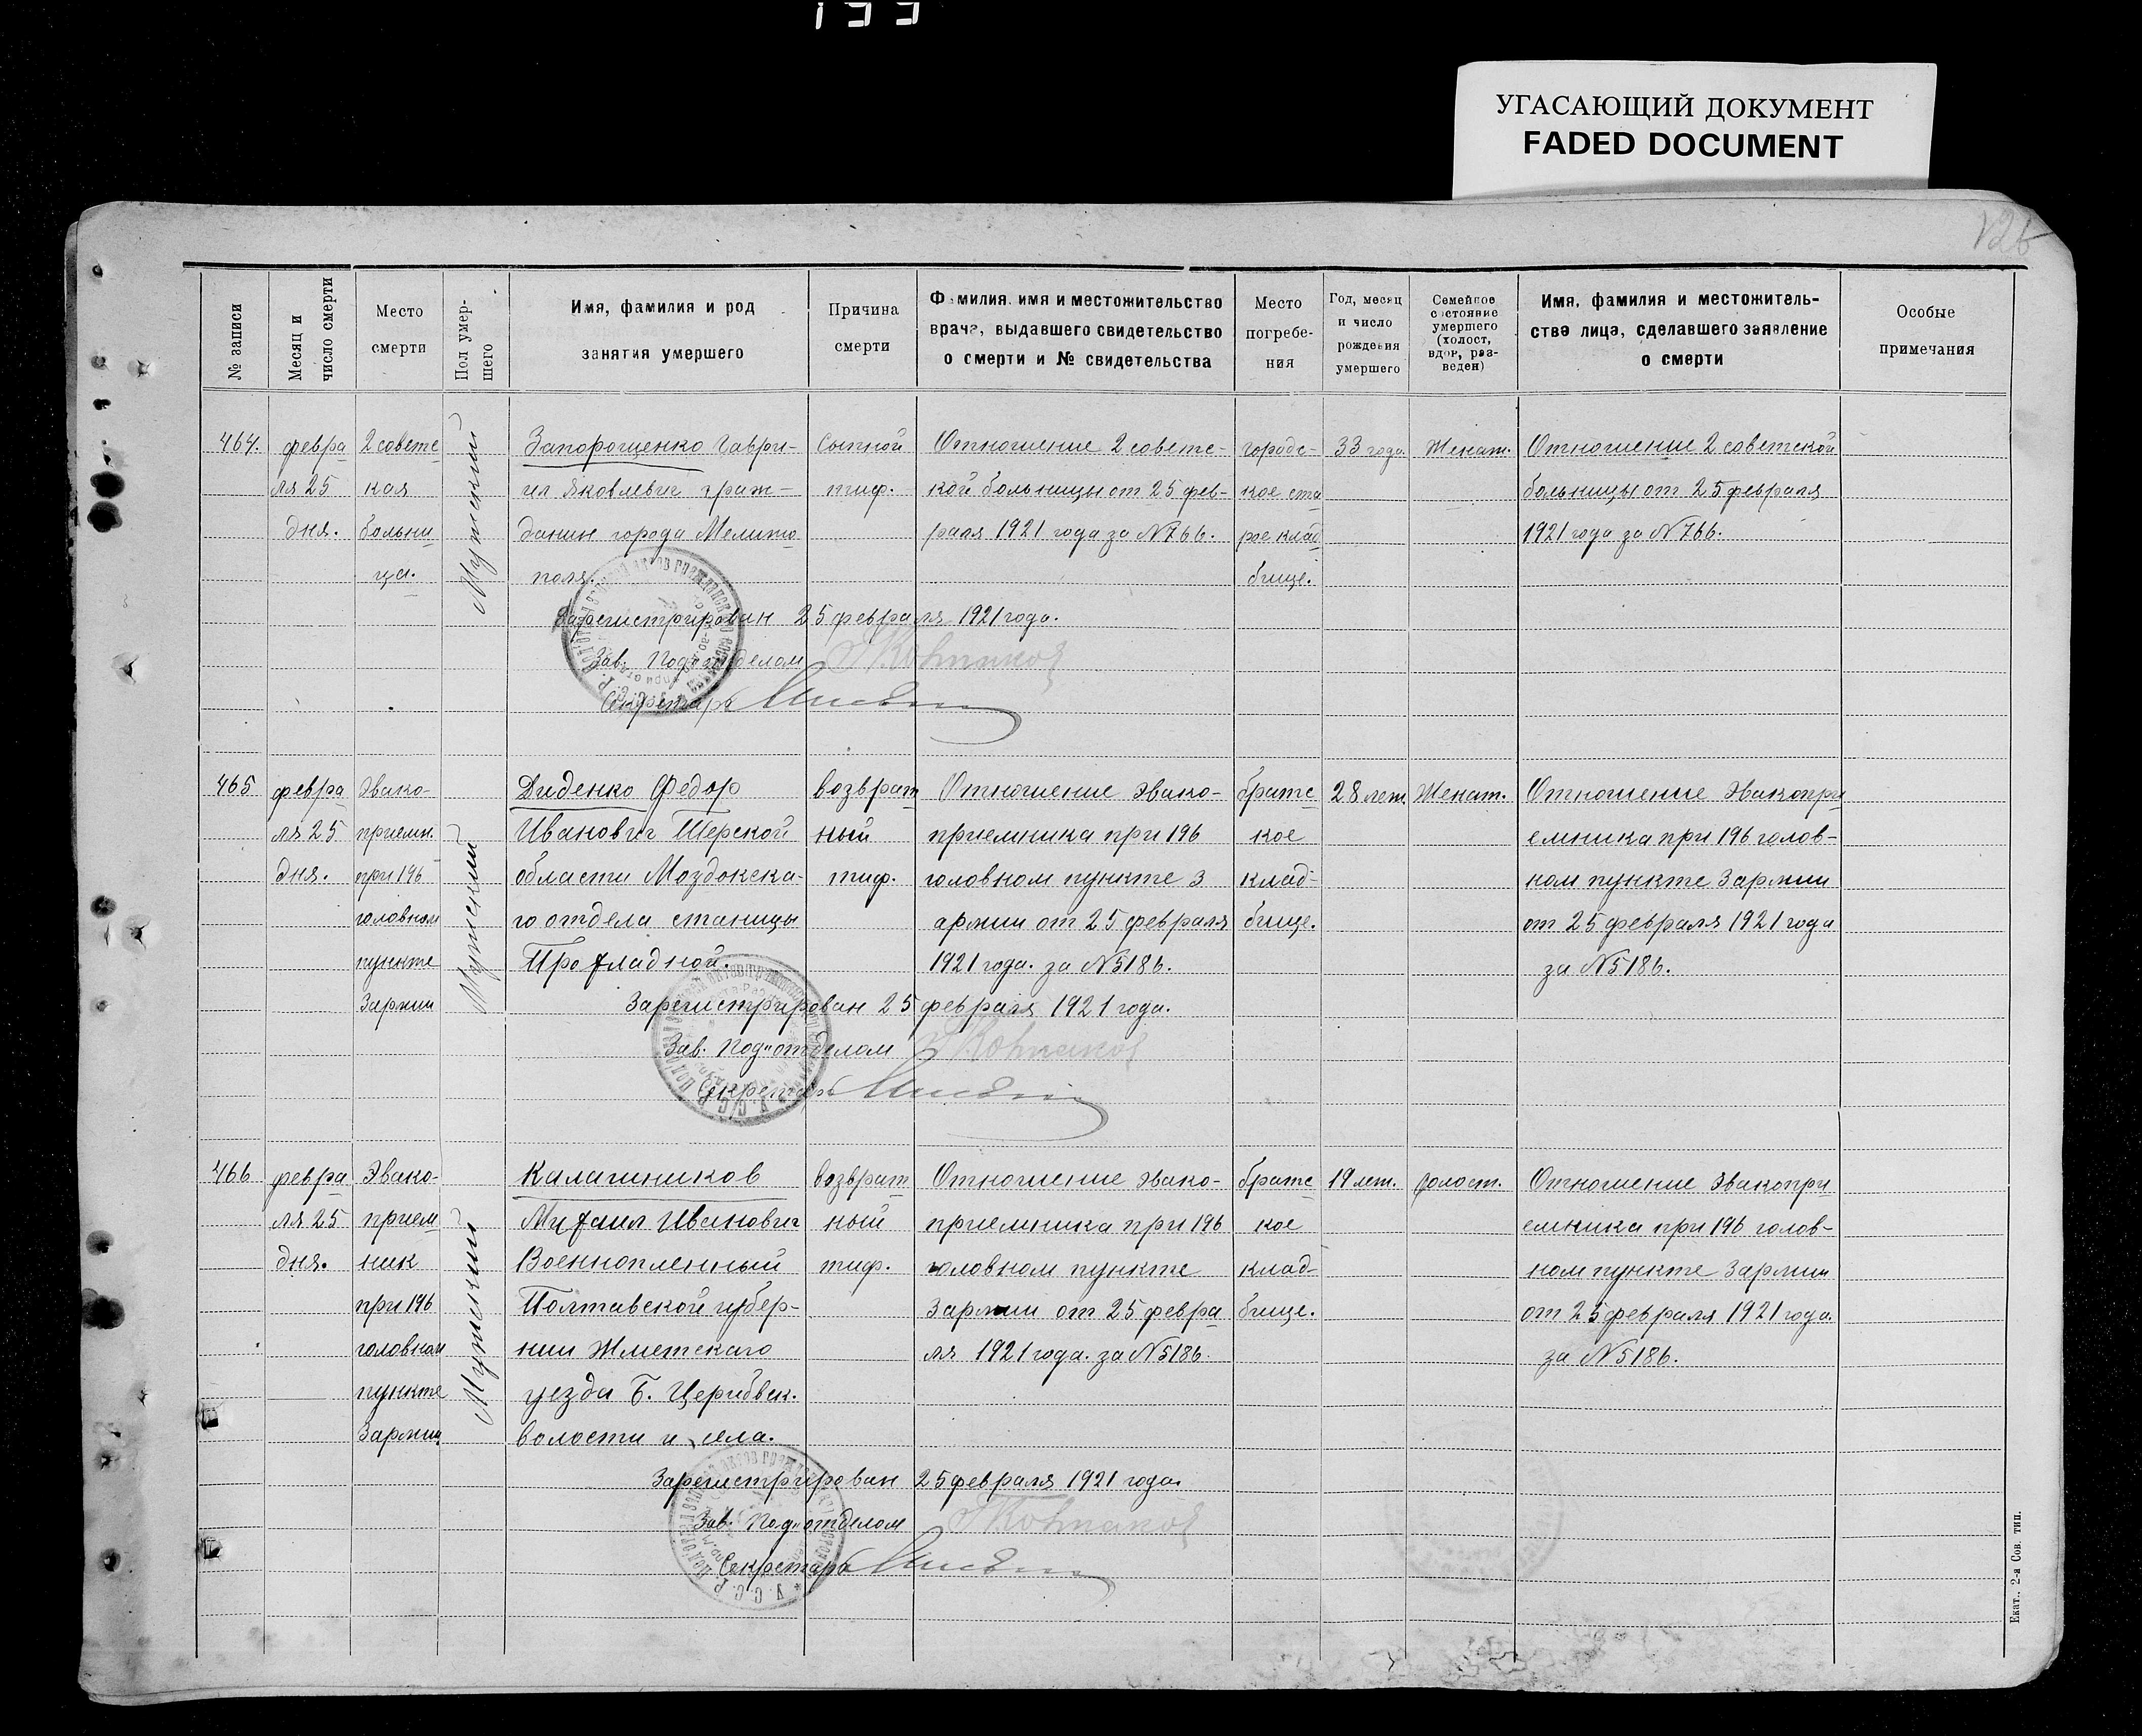 199
УГАСАЮЩИЙ ДОКУМЕНТ
FADED DOCUMENT
126
№ записи
Месяц и
число смерти
Место
смерти
Пол умер-
шего
Имя, фамилия и род
занятия умершего
Причина
смерти
Фамилия, имя и местожительство
врача, выдавшего свидетельство
о смерти и № свидетельства
Место
погребе-
ния
Год, месяц
и число
рождения
умершего
Семейное
состояние
умершего
(холост,
вдов, раз-
веден)
Имя, фамилия и местожитель-
ства лица, сделавшего заявление
о смерти
Особые
примечания
464.
февра
ля 25
дня.
2 советс
кая
больни
ца.
Мужской
Запорощенко Гаври-
ил Яковлевич граж-
данин города Мелито
поля.
Сыпной
тиф.
Отношение 2 советс-
кой больницы от 25 фев-
раля 1921 года за N 766.
городс-
кое ста
рое клад
бище.
33 года.
Женат.
Отношение 2 советской
больницы от 25 февраля
1921 года за N 766.
Зарегистрирован 25 февраля 1921 года.
Зав. Под"отделом
Секретарь
465
февра
ля 25
дня.
Эвако-
приемн.
при 196
головном
пункте
3 армии
Мужский
Диденко Федор
Иванович Терской
области Моздокска-
го отдела станицы
Прохладной.
возврат
ный
тиф.
Отношение эвако-
приемника при 196
головном пункте 3
армии от 25 февраля
1921 года. за N 5186.
братс
кое
клад-
бище.
28 лет.
Женат.
Отношение Эвакопри
емника при 196 голов-
ном пункте 3 армии
от 25 февраля 1921 года
за N 5186.
Зарегистрирован 25 февраля 1921 года.
Зав. Под"отделом
Секретарь
466
февра
ля 25
дня.
Эвако-
прием
ник
при 196
головном
пункте
3 армии
Мужский
Калашников
Михаил Иванович
Военнопленный
Полтавской губер-
нии
уезда Б.
волости и села.
возврат
ный
тиф.
Отношение эвако-
приемника при 196
головном пункте
3 армии от 25 февра
ля 1921 года. за N 5186.
братс
кое
клад-
бище.
19 лет.
холост.
Отношение Эвакопри
емника при 196 голов-
ном пункте 3 армии
от 25 февраля 1921 года.
за N 5186.
Зарегистрирован 25 февраля 1921 года.
Зав. Под"отделом
Секретарь
Екат. 2-я Сов. тип.